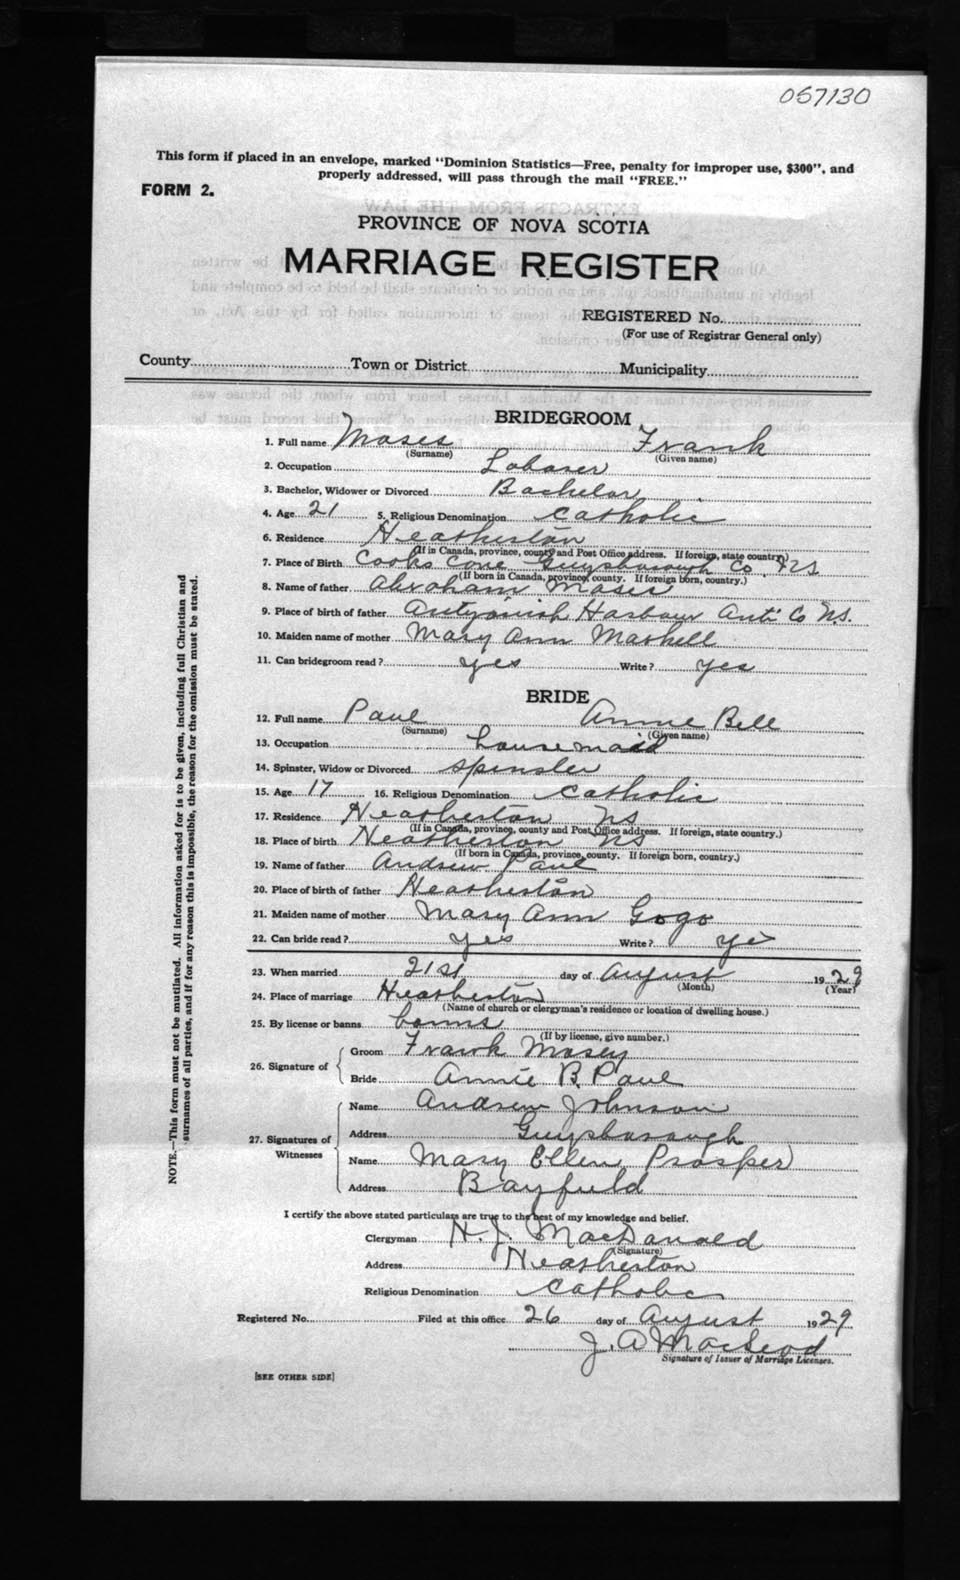 057130
This form if placed in an envelope, marked "Dominion Statistics—Free, penalty for improper use, $300", and
properly addressed, will pass through the mail "FREE."
FORM 2.
PROVINCE OF NOVA SCOTIA
MARRIAGE REGISTER
REGISTERED No.
(For use of Registrar General only)
County Town or District Municipality
BRIDEGROOM
1. Full name Moses Frank
(Surname) (Given name)
2. Occupation Laborer
3. Bachelor, Widower or Divorced Bachelor
4. Age 21 5. Religious Denomination Catholic
6. Residence Heatherton
(If in Canada, province, county and Post Office address. If foreign, state country.)
7. Place of Birth Cooks Cove Guysborough Co NS
(If born in Canada, province, county. If foreign born, country.)
8. Name of father Abraham Moses
9. Place of birth of father Antigonish Harbour Anti Co N.S.
10. Maiden name of mother Mary Ann Maskell
11. Can bridegroom read? yes Write? yes
BRIDE
12. Full name Paul Annie Bell
(Surname) (Given name)
13. Occupation housemaid
14. Spinster, Widow or Divorced spinster
15. Age 17 16. Religious Denomination Catholic
17. Residence Heatherton NS
(If in Canada, province, county and Post Office address. If foreign, state country.)
18. Place of birth Heatherton NS
(If born in Canada, province, county. If foreign born, country.)
19. Name of father Andrew Paul
20. Place of birth of father Heatherton
21. Maiden name of mother Mary Ann Gogo
22. Can bride read? yes Write? ye
23. When married 21st day of August 1929
(Month) (Year)
24. Place of marriage Heatherton
(Name of church or clergyman's residence or location of dwelling house.)
25. By license or banns banns
(If by license, give number.)
26. Signature of
Groom Frank Mosey
Bride Annie B. Paul
27. Signatures of Witnesses
Name Andrew Johnson
Address Guysborough
Name Mary Ellen Prosper
Address Bayfield
I certify the above stated particulars are true to the best of my knowledge and belief.
Clergyman H. J. MacDonald
(Signature)
Address Heatherton
Religious Denomination Catholic
Registered No. Filed at this office 26 day of August 1929
J. A MacLeod
Signature of Issuer of Marriage Licenses.
[SEE OTHER SIDE]
NOTE.—This form must not be mutilated. All information asked for is to be given, including full Christian and
surnames of all parties, and if for any reason this is impossible, the reason for the omission must be stated.